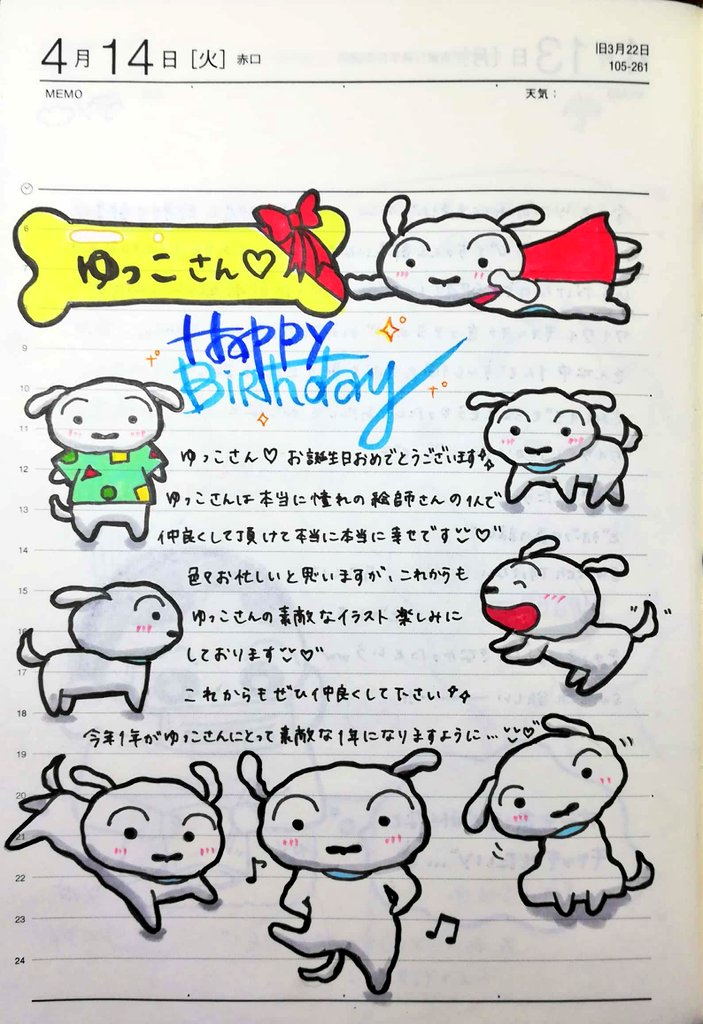 4月14日［火］赤口
旧3月22日
105-261
MEMO
天気：
ゆっこさん♡
Happy
Birthday
ゆっこさん♡ お誕生日おめでとうございます
ゆっこさんは本当に憧れの絵師さんの1人で
仲良くして頂けて本当に本当に幸せです♡
色々お忙しいと思いますが、これからも
ゆっこさんの素敵なイラスト楽しみに
しております♡
これからもぜひ仲良くして下さい
今年1年がゆっこさんにとって素敵な1年になりますように…♡
6
9
10
11
12
13
14
15
16
17
18
19
20
21
22
23
24